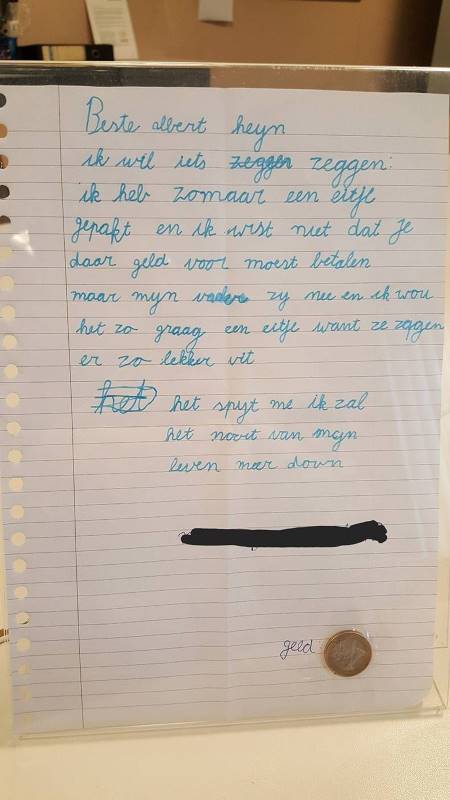 Beste albert heyn
ik wil iets zeggen zeggen:
ik heb zomaar een eitje
gepakt en ik wist niet dat je
daar geld voor moest betalen
maar mijn vader zij nee en ik wou
het zo graag een eitje want ze zagen
er zo lekker uit
het het spijt me ik zal
het nooit van mijn
leven meer doun
geld